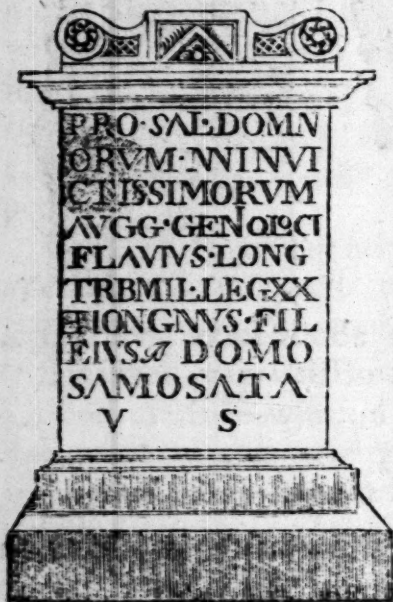 PRO·SAL·DOMN
ORVM·NNINVI
CTISSIMORVM
AVGG·GENOLOCI
FLAVIVS·LONG
TRBMIL·LEGXX
LONGNVS·FIL
EIVS DOMO
SAMOSATA
V S